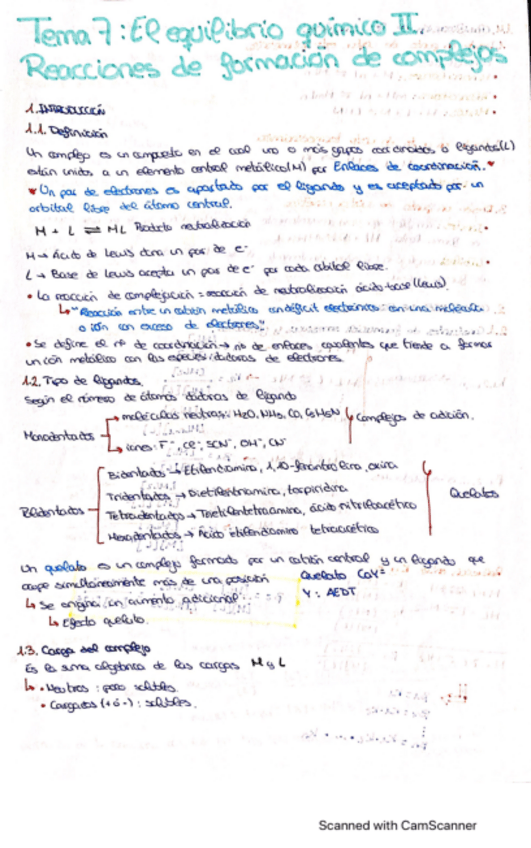 Tema 7: El equilibrio químico II.
Reacciones de formación de complejos
1. INTRODUCCIÓN
1.1. Definición
Un complejo es un compuesto en el cual uno o más grupos coordinados o ligandos (L)
están unidos a un elemento central metálico (M) por Enlaces de coordinación. *
* Un par de electrones es aportado por el ligando y es aceptado por un
orbital libre del átomo central.
M + L ⇌ ML Producto neutralización
M → Ácido de Lewis dona un par de e⁻
L → Base de Lewis acepta un par de e⁻ por cada orbital libre.
• La reacción de complejación = reacción de neutralización ácido-base (Lewis).
↳ "Reacción entre un catión metálico con déficit electrónico con una molécula
o ión con exceso de electrones"
• Se define el nº de coordinación → nº de enlaces covalentes que tiende a formar
un ión metálico con las especies dadoras de electrones
1.2. Tipo de ligandos.
Según el número de átomos dadores de ligando
Monodentados
→ moléculas neutras: H₂O, NH₃, CO, C₆H₅N
→ iones: F⁻, Cl⁻, SCN⁻, OH⁻, CN⁻
Complejos de adición.
Polidentados
Bidentados → Etilendiamina, 1,10-fenantrolina, oxina
Tridentados → Dietilentriamina, terpiridina
Tetradentados → Trietilentetraamina, ácido nitrilotriacético
Hexadentados → Ácido etilendiamino tetraacético
Quelatos
Un quelato es un complejo formado por un catión central y un ligando que
ocupe simultáneamente más de una posición
Quelato CaY²⁻
Y: AEDT
↳ Se origina un aumento adicional
↳ Efecto quelato.
1.3. Carga del complejo
Es la suma algebraica de las cargas M y L
↳ • Neutros: poco solubles
• Cargados (+ ó -): solubles.
Scanned with CamScanner